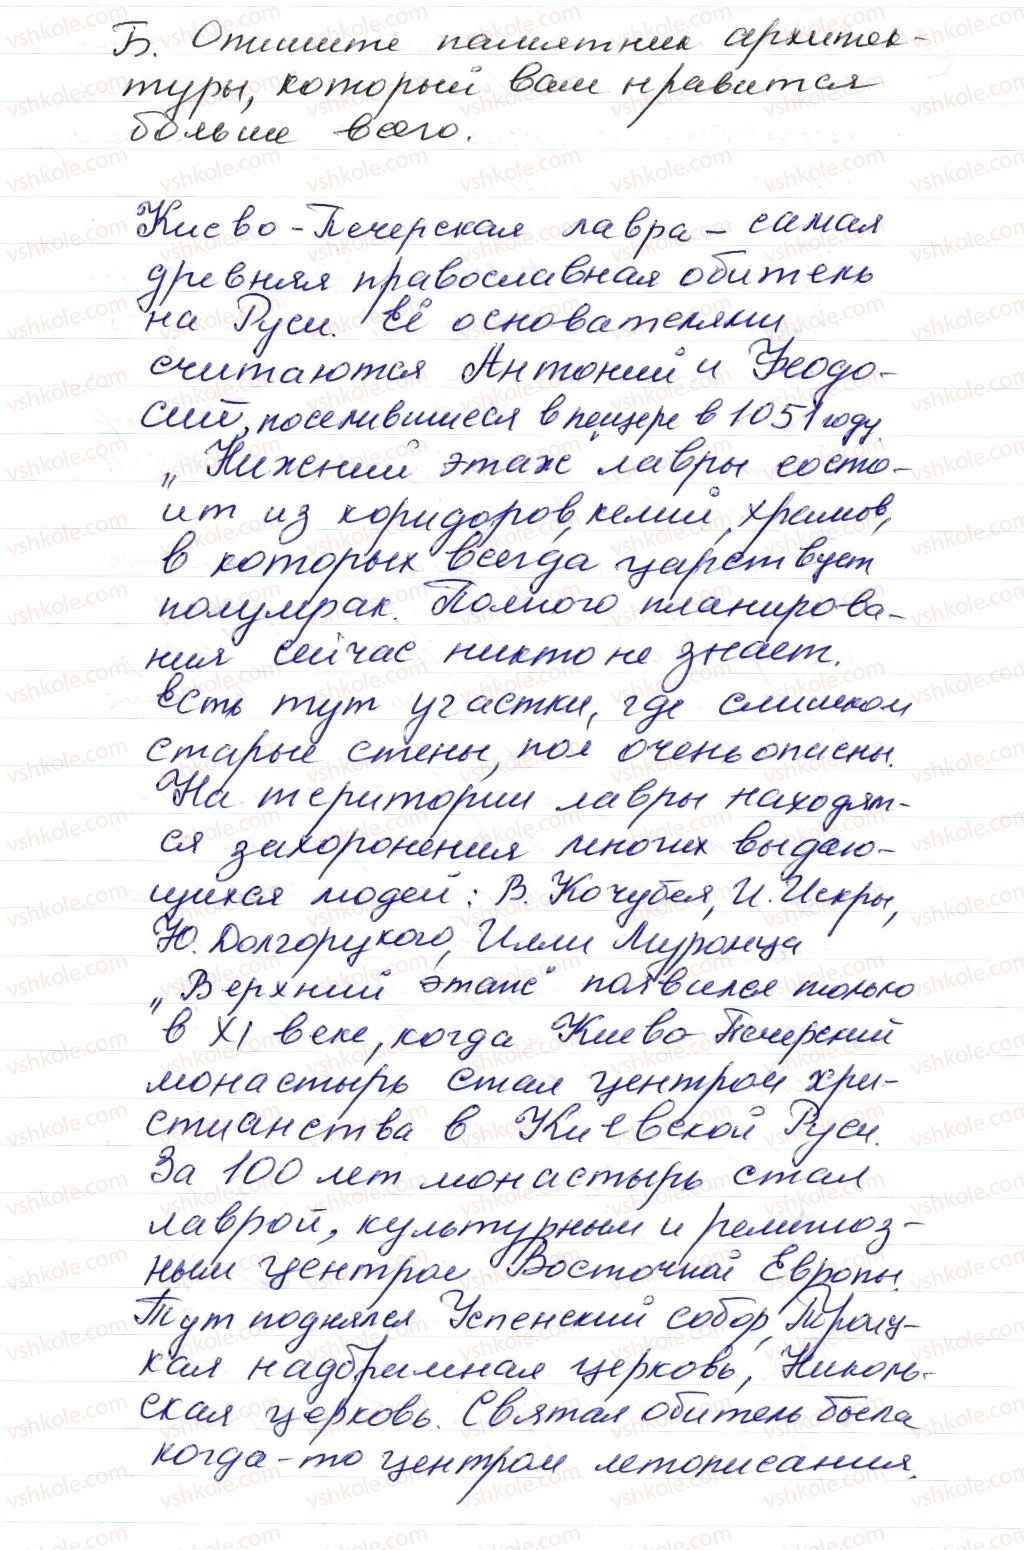 Б. Опишите памятник архитек-
туры, который вам нравится
больше всего.
Киево-Печерская лавра – самая
древняя православная обитель
на Руси. Её основателями
считаются Антоний и Феодо-
сий, поселившиеся в пещере в 1051 году.
„Нижний этаж" лавры состо-
ит из коридоров, келий, храмов,
в которых всегда царствует
полумрак. Полного планирова-
ния сейчас никто не знает.
Есть тут участки, где слишком
старые стены, пол очень опасны.
На територии лавры находят-
ся захоронения многих выдаю-
щихся людей: В. Кочубея, И. Искры,
Ю. Долгорукого, Илли Муромца
„Верхний этаж" появился только
в XI веке, когда Киево-Печерский
монастырь стал центром хри-
стианства в Киевской Руси.
За 100 лет монастырь стал
лаврой, культурным и религиоз-
ным центром Восточной Европы.
Тут поднялся Успенский собор, Троиц-
кая надбрамная церковь, Николь-
ская церковь. Святая обитель была
когда-то центром летописания.